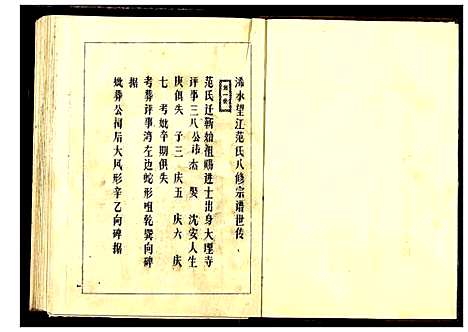 浠水望江范氏八修宗谱世传
第一世
范氏迁蕲始祖赐进士出身大理寺
评事三八公讳杰 娶 沈安人生
庚俱失 子三 庆五 庆六 庆
七 考妣卒期俱失
考葬评事湾左边蛇形咀乾巽向碑
据
妣葬公祠后大凤形辛乙向碑据